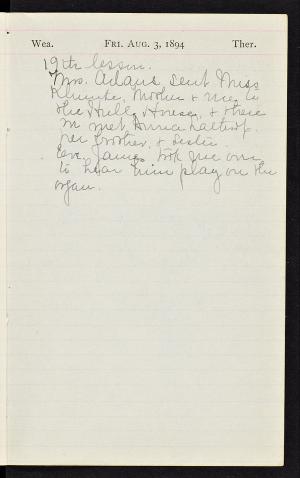 Wea. FRI. AUG. 3, 1894 Ther.
19th lesson.
Mrs. Adams sent Miss
Klumpke, Mother & me to
the Hull House, & there
we met Anna Lathrop
her brother, & sister.
Eve. James took me over
to hear him play on the
organ.